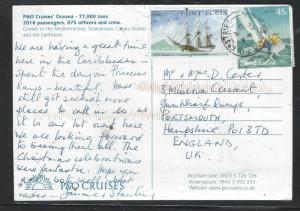 P&O Cruises' Oceana - 77,000 tons
2016 passengers, 875 officers and crew.
Cruises to the Mediterranean, Scandinavia, Canary Islands
and the Caribbean.
We are having a great time
here in the Caribbean -
spent the day on Princess
Kays - beautiful. Have
still got several more
places to call in so as
it is our 1st visit here
we are looking forward
to seeing them all. The
Christmas celebrations
were fantastic. Hope you
both well. Best
wishes - Stanley
P&O CRUISES
SAINT LUCIA
Saint Lucia
45c
Mr & Mrs D. Carter,
3 Minerva Crescent
Gunwharf Quays,
PORTSMOUTH,
Hampshire. PO1 3TD
ENGLAND,
U.K.
Brochure Line: 08705 726 126
Reservations: 0845 3 555 333
Website: www.pocruises.com